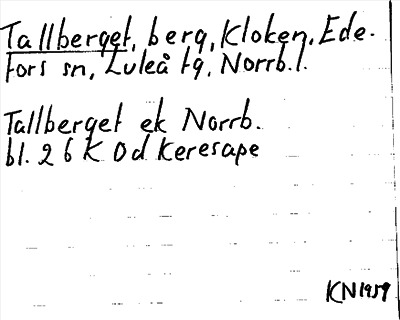 Tallberget, berg, Kloken, Ede-
fors sn, Luleå tg, Norrb.l.
Tallberget ek Norrb.
bl. 26 K 0d Keresape
KN 1959